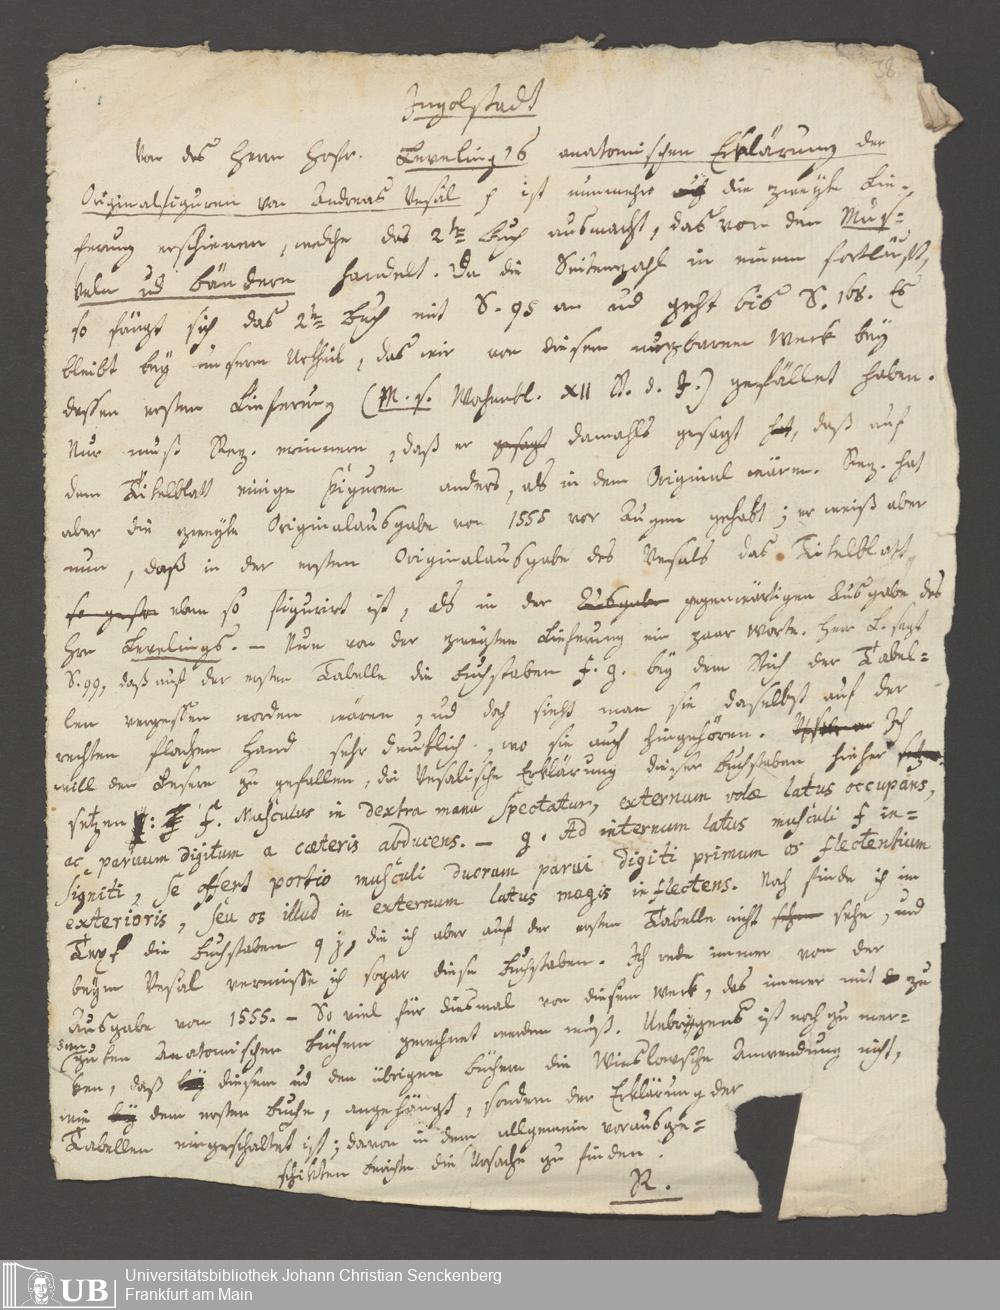 38
Ingolstadt
Von des Herrn Hofr. Levelings anatomischen Erklärung der
Originalfiguren von Andreas Vesal ist nunmehr die zweyte Lie-
ferung erschienen, welche das 2te Buch ausmacht, das von den Mus-
keln und Bändern handelt. Da die Seitenzahl in einem fortläuft,
so fängt sich das 2te Buch mit S. 95 an und geht bis S. 168. Es
bleibt bey unserm Urtheil, das wir von diesem nuzbaren Werk bey
dessen ersten Lieferung (M. s. Wochenbl. XII St. d. J.) gefället haben.
Nur muß Rez. erinnern, daß er gesagt damahls gesagt hat, daß auf
dem Titelblatt einige Figuren anders, als in dem Original wären. Rez. hat
aber die zweyte Originalausgabe von 1555 vor Augen gehabt; er weiß aber
nun, daß in der ersten Originalausgabe des Vesals das Titelblatt
eben so figurirt ist, als in der Ausgabe gegenwärtigen Ausgabe des
Hrn Levelings. – Nun von der zweyten Lieferung ein paar Worte. Herr L. sagt
S. 99, daß auf der ersten Tabelle die Buchstaben f. g. bey dem Stich der Tabel=
len vergessen worden wären, und doch sieht man sie daselbst auf der
rechten flachen Hand sehr deutlich, wo sie auch hingehören. Ich
will den Lesern zu gefallen, die Vesalische Erklärung dieser Buchstaben hieher
setzen: f. Musculus in dextra manu spectatur, externum volæ latus occupans,
ac parvum digitum a cæteris abducens. – g. Ad internum latus musculi f in=
signiti, se offert portio musculi duorum parvi digiti primum os flectentium
exterioris, seu os illud in externum latus magis inflectens. Noch finde ich im
Text die Buchstaben q j, die ich aber auf der ersten Tabelle nicht sehe, und
beym Vesal vermisse ich sogar diese Buchstaben. Ich rede immer von der
Ausgabe von 1555. – So viel für diesmal von diesem Werk, das immer mit zu
guten Anatomischen Büchern gerechnet werden muß. Uebrigens ist noch zu mer=
ken, daß diesem und den übrigen Büchern die Winslowsche Anwendung nicht,
wie dem ersten Buche, angehängt, sondern der Erklärung der
Tabellen eingeschaltet ist; davon in dem allgemein vorausge=
schikten Bericht die Ursache zu finden.
R.
UB
Universitätsbibliothek Johann Christian Senckenberg
Frankfurt am Main